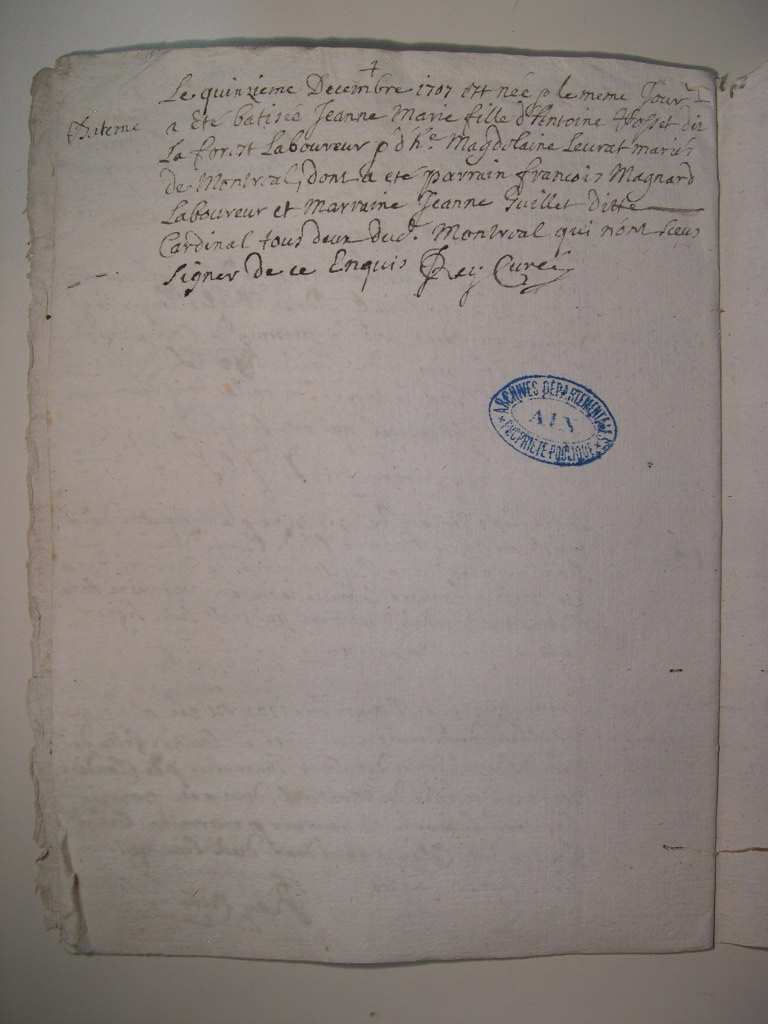 Bateme
Le quinzieme Decembre 1707 est née & le meme Jour
a eté batisée Jeanne Marie fille d'Antoine dit
La forest Laboureur & d'h.e Magdelaine Leurat mariés
de Montreal, dont a eté parrain francois Magnard
Laboureur et Marraine Jeanne Guillet Ditte
Cardinal tous deux dud. Montreal qui n'ont sceus
signer de ce Enquis Rey Curé
ARCHIVES DÉPARTEMENTALES
AIN
PROPRIÉTÉ PUBLIQUE